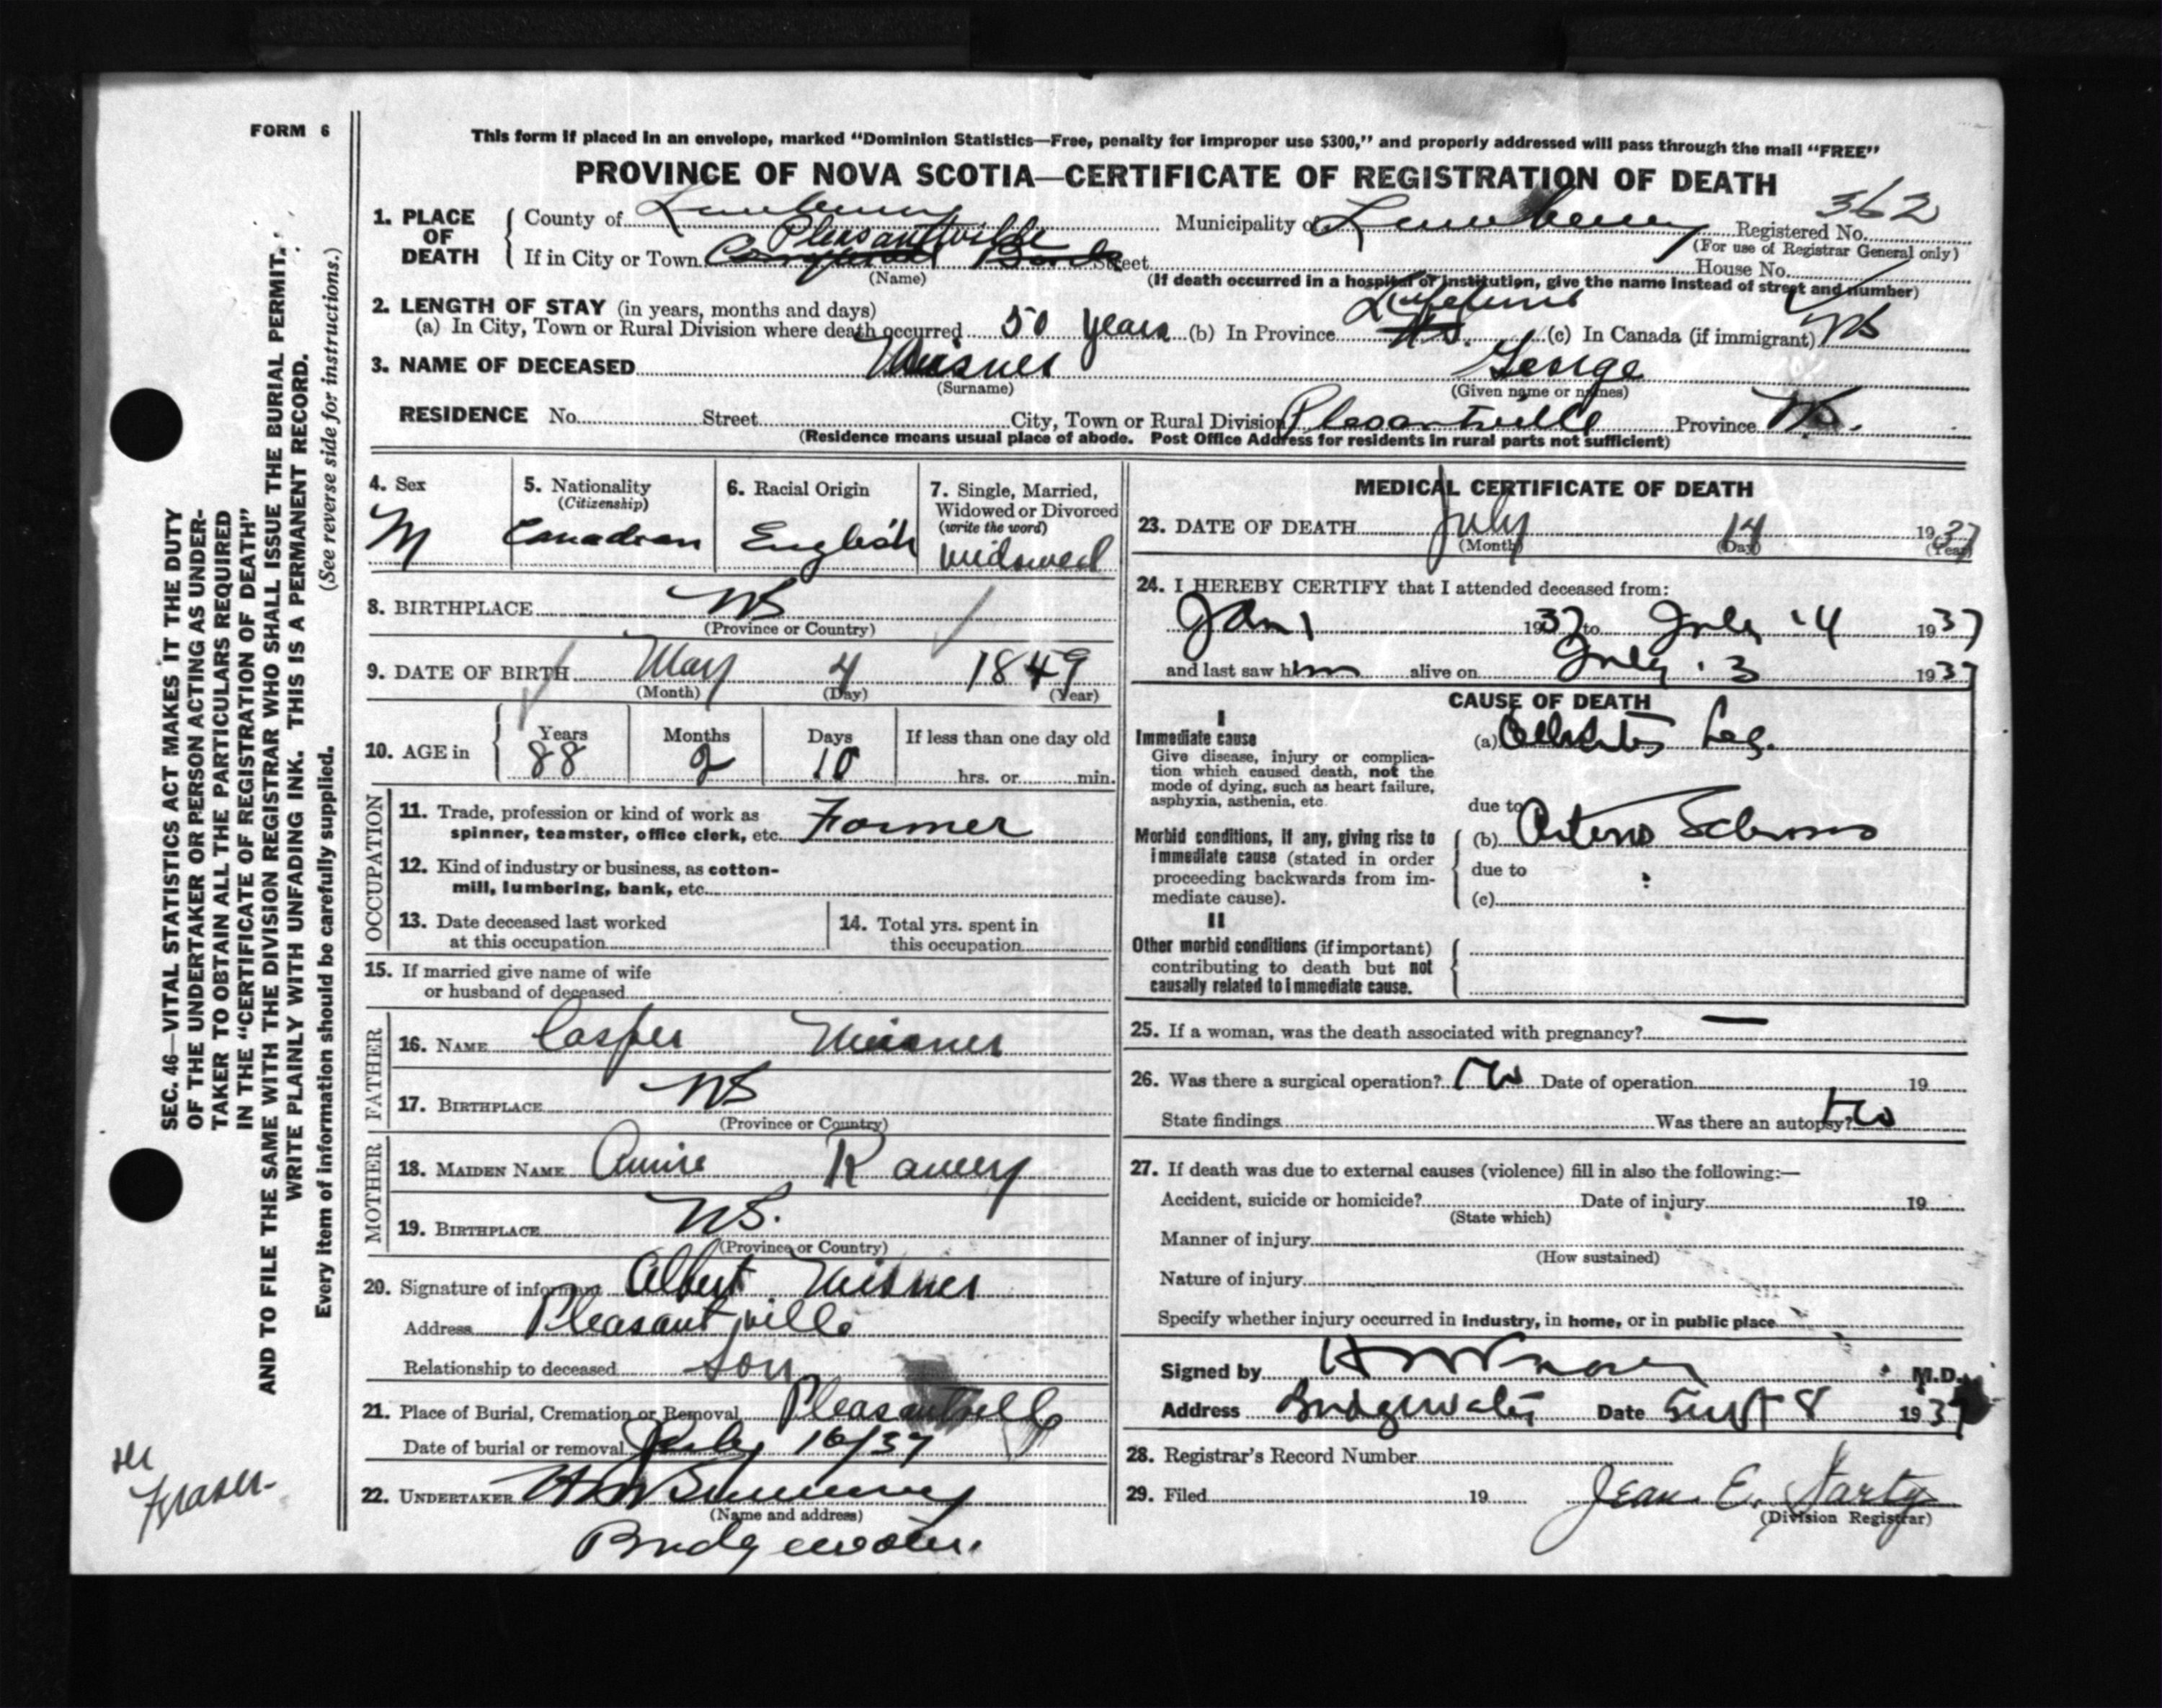 FORM 6
This form if placed in an envelope, marked “Dominion Statistics—Free, penalty for improper use $300,” and properly addressed will pass through the mail “FREE”
PROVINCE OF NOVA SCOTIA—CERTIFICATE OF REGISTRATION OF DEATH
362
1. PLACE OF DEATH County of Lunenburg Municipality of Lunenburg Registered No.
(For use of Registrar General only)
Pleasantville
If in City or Town Bank Street House No.
(Name) (If death occurred in a hospital or institution, give the name instead of street and number)
2. LENGTH OF STAY (in years, months and days) Lifetime
(a) In City, Town or Rural Division where death occurred 50 years (b) In Province N.S. (c) In Canada (if immigrant) NS
3. NAME OF DECEASED Meisner George
(Surname) (Given name or names)
RESIDENCE No. Street City, Town or Rural Division Pleasantville Province NS.
(Residence means usual place of abode. Post Office Address for residents in rural parts not sufficient)
4. Sex M
5. Nationality (Citizenship) Canadian
6. Racial Origin English
7. Single, Married, Widowed or Divorced (write the word) widowed
8. BIRTHPLACE NS
(Province or Country)
9. DATE OF BIRTH May 4 1849
(Month) (Day) (Year)
10. AGE in Years 88 Months 2 Days 10 If less than one day old
hrs. or min.
OCCUPATION
11. Trade, profession or kind of work as
spinner, teamster, office clerk, etc. Farmer
12. Kind of industry or business, as cotton-
mill, lumbering, bank, etc.
13. Date deceased last worked
at this occupation
14. Total yrs. spent in
this occupation
15. If married give name of wife
or husband of deceased
FATHER
16. NAME Casper Meisner
17. BIRTHPLACE NS
(Province or Country)
MOTHER
18. MAIDEN NAME Annie Ramey
19. BIRTHPLACE NS.
(Province or Country)
20. Signature of informant Albert Meisner
Address Pleasantville
Relationship to deceased Son
21. Place of Burial, Cremation or Removal Pleasantville
Date of burial or removal July 16/37
22. UNDERTAKER
(Name and address)
Bridgewater.
MEDICAL CERTIFICATE OF DEATH
23. DATE OF DEATH July 14 1937
(Month) (Day) (Year)
24. I HEREBY CERTIFY that I attended deceased from:
Jan 1 1937 to July 14 1937
and last saw him alive on July 13 1937
CAUSE OF DEATH
I
Immediate cause
Give disease, injury or complica-
tion which caused death, not the
mode of dying, such as heart failure,
asphyxia, asthenia, etc.
(a) Cellulitis Leg.
due to
Morbid conditions, if any, giving rise to
immediate cause (stated in order
proceeding backwards from im-
mediate cause).
(b) Arterio Sclerosis
due to
(c)
II
Other morbid conditions (if important)
contributing to death but not
causally related to immediate cause.
25. If a woman, was the death associated with pregnancy? —
26. Was there a surgical operation? No Date of operation 19
State findings Was there an autopsy? No
27. If death was due to external causes (violence) fill in also the following:—
Accident, suicide or homicide? Date of injury 19
(State which)
Manner of injury
(How sustained)
Nature of injury
Specify whether injury occurred in industry, in home, or in public place
Signed by M.D.
Address Bridgewater Date Sept 8 1937
28. Registrar's Record Number
29. Filed 19 Jean E. Sarty
(Division Registrar)
SEC. 46—VITAL STATISTICS ACT MAKES IT THE DUTY
OF THE UNDERTAKER OR PERSON ACTING AS UNDER-
TAKER TO OBTAIN ALL THE PARTICULARS REQUIRED
IN THE “CERTIFICATE OF REGISTRATION OF DEATH”
AND TO FILE THE SAME WITH THE DIVISION REGISTRAR WHO SHALL ISSUE THE BURIAL PERMIT.
WRITE PLAINLY WITH UNFADING INK. THIS IS A PERMANENT RECORD.
Every item of information should be carefully supplied. (See reverse side for instructions.)
Fraser.